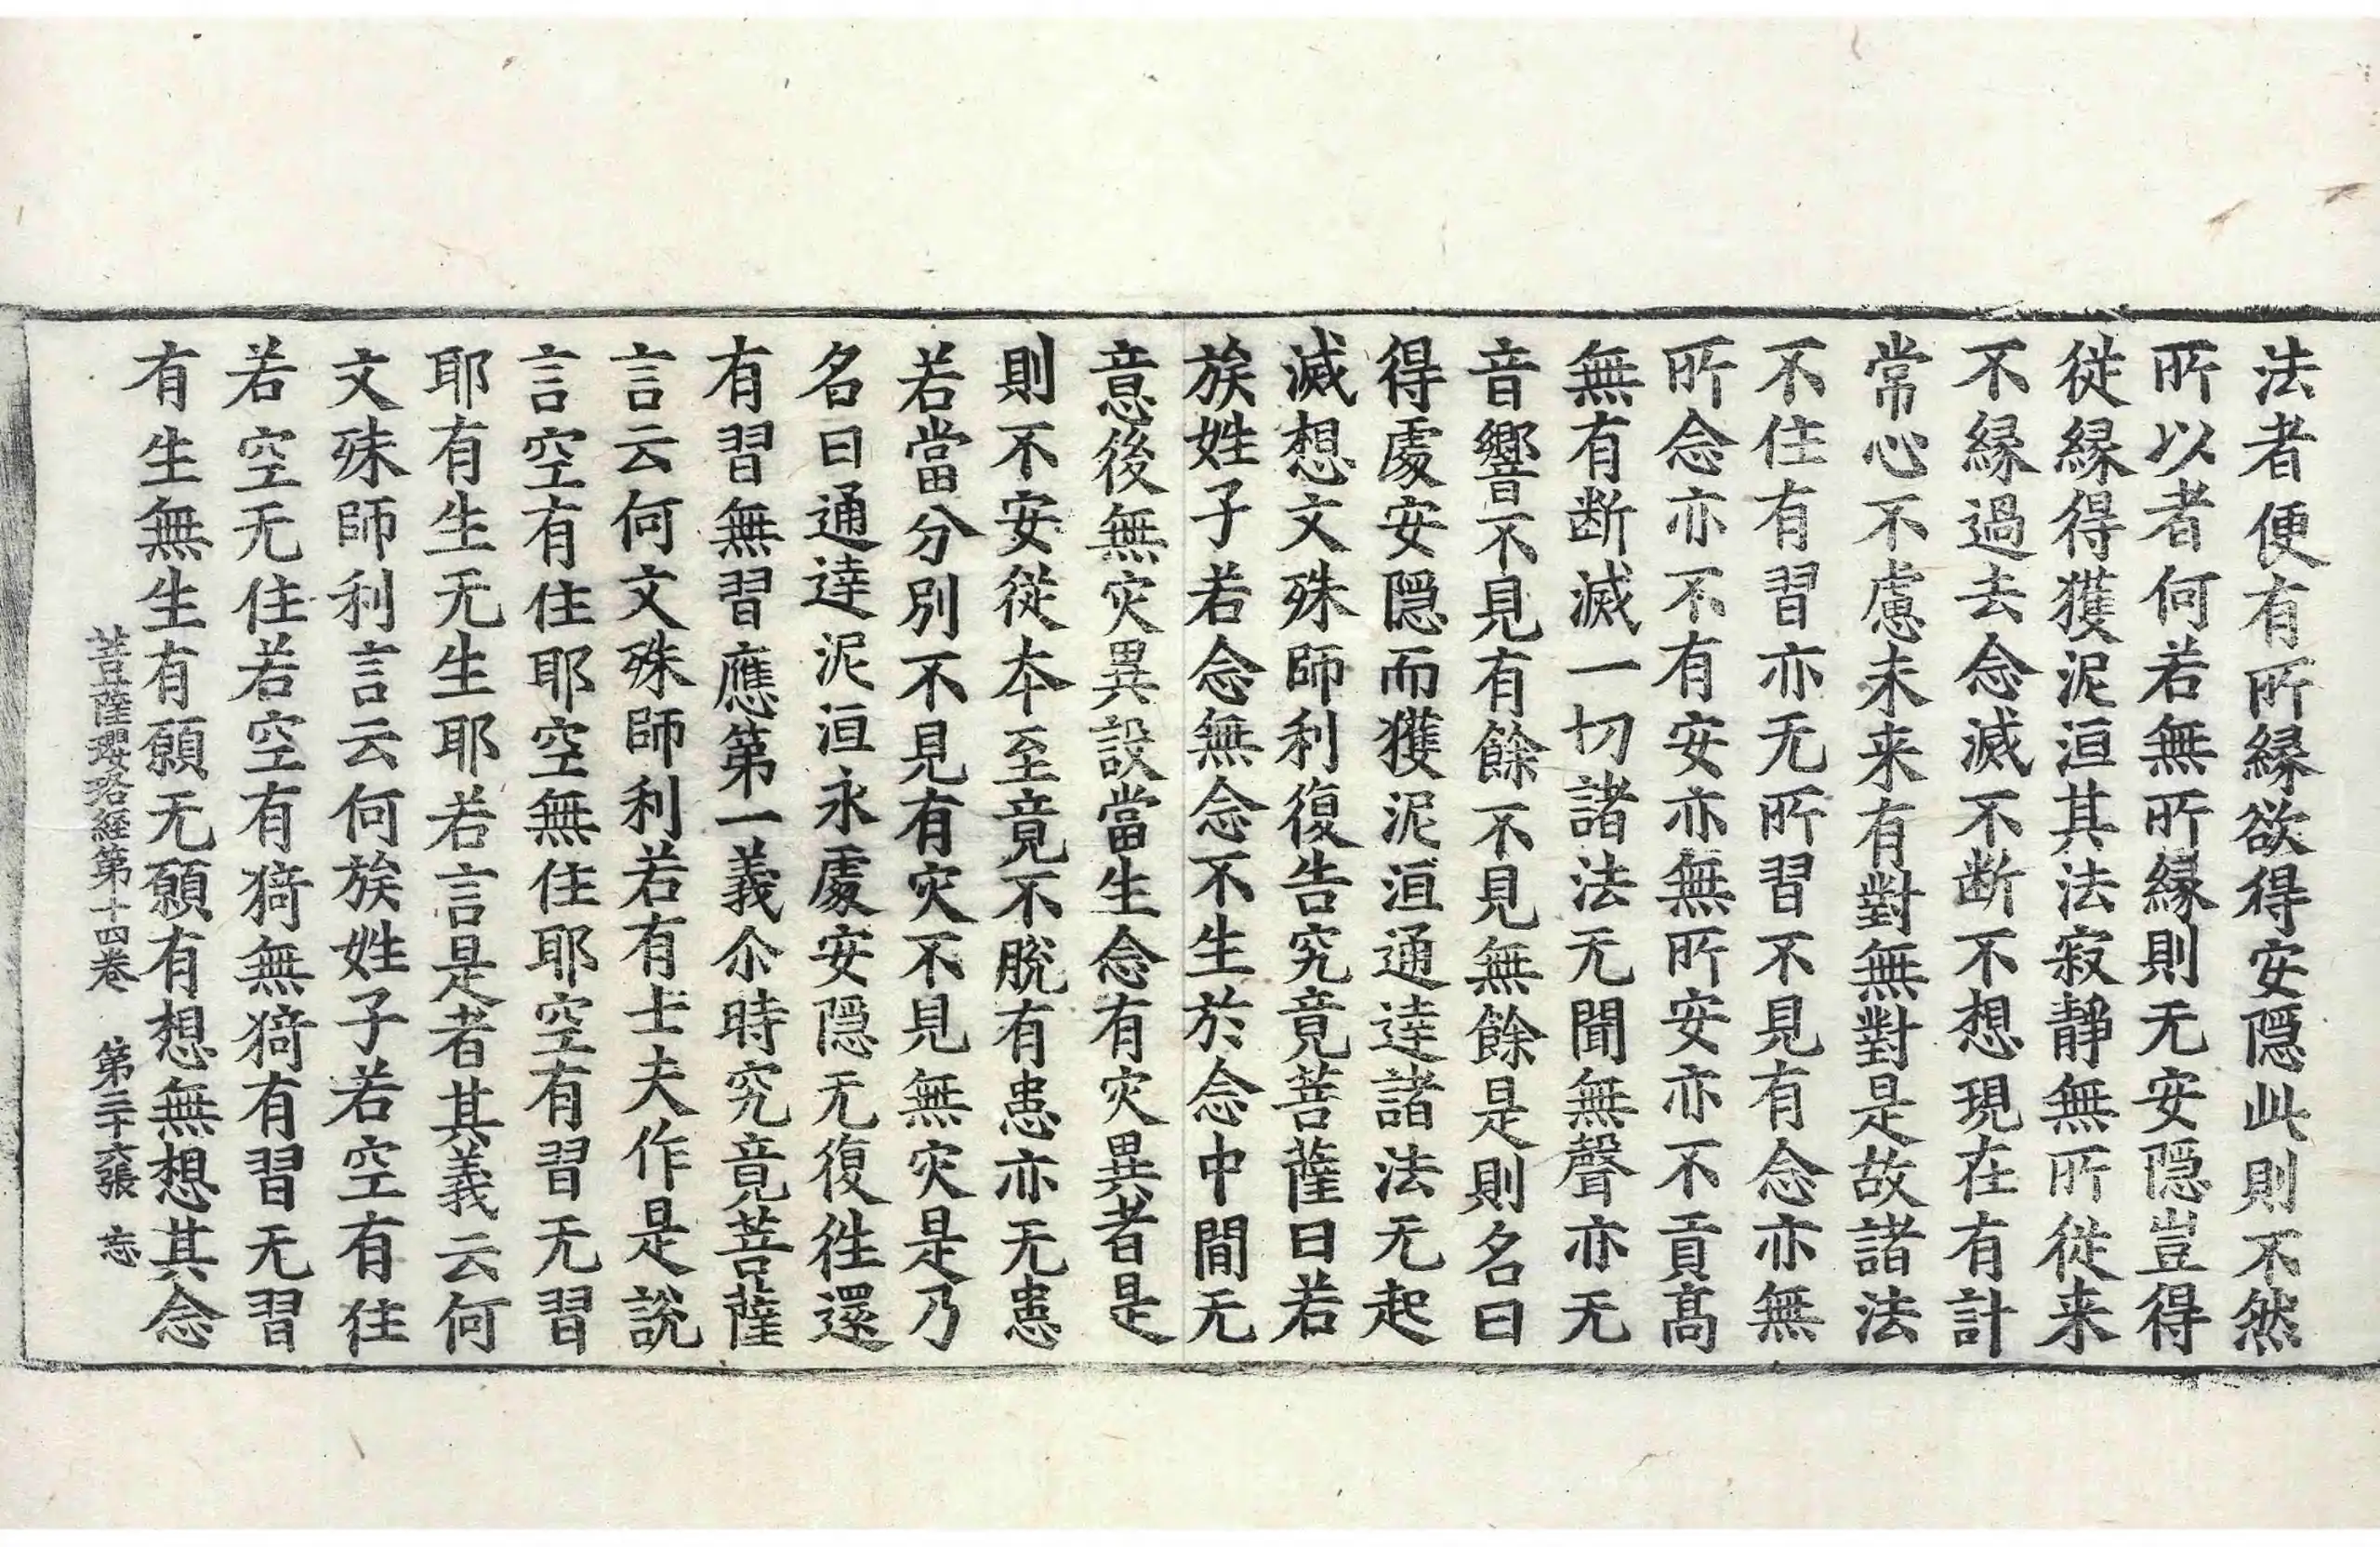 法者便有所縁欲得安隱此則不然
所以者何若無所縁則无安隱豈得
從縁得獲泥洹其法寂靜無所從来
不縁過去念滅不断不想現在有計
常心不慮未来有對無對是故諸法
不住有習亦无所習不見有念亦無
所念亦不有安亦無所安亦不貢髙
無有断滅一切諸法无聞無聲亦无
音響不見有餘不見無餘是則名曰
得處安隱而獲泥洹通達諸法无起
滅想文殊師利復告究竟菩薩曰若
族姓子若念無念不生於念中間无
意後無灾異設當生念有灾異者是
則不安從夲至竟不脫有患亦无患
若當分別不見有灾不見無灾是乃
名曰通達泥洹永處安隱无復徃還
有習無習應第一義尒時究竟菩薩
言云何文殊師利若有士夫作是說
言空有住耶空無住耶空有習无習
耶有生无生耶若言是者其義云何
文殊師利言云何族姓子若空有住
若空无住若空有猗無猗有習无習
有生無生有願无願有想無想其念
菩薩瓔珞経第十四卷　第二十六張　忘